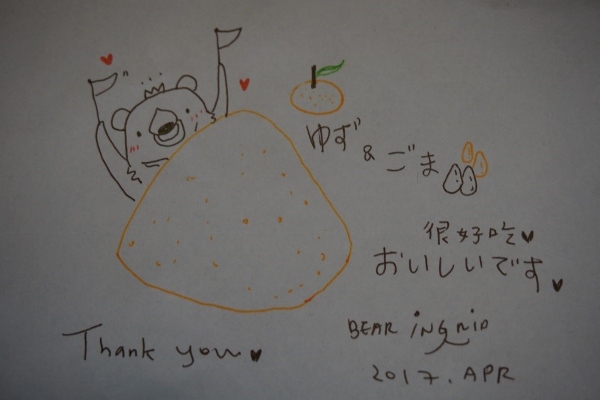 ゆず & ごま
很好吃♥
おいしいです♥
Thank you♥
BEAR iNGRID
2017. APR